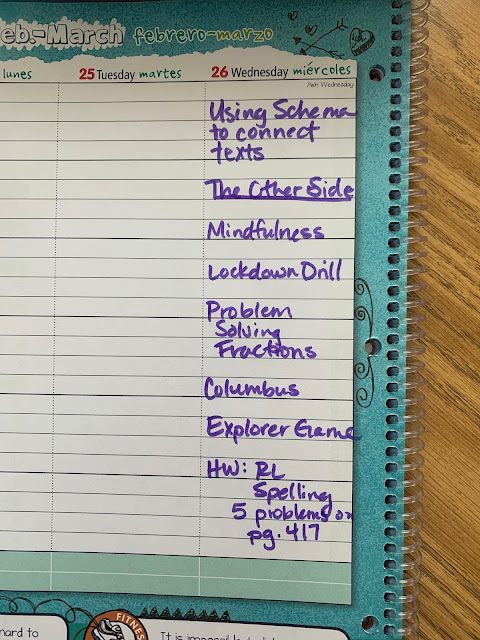 eb.-March febrero-marzo
lunes
25 Tuesday martes
26 Wednesday miércoles
Ash Wednesday
Using Schema
to connect
texts
The Other Side
Mindfulness
Lockdown Drill
Problem
Solving
Fractions
Columbus
Explorer Game
HW: RL
Spelling
5 problems on
pg. 417
hard to
FITNES
It is